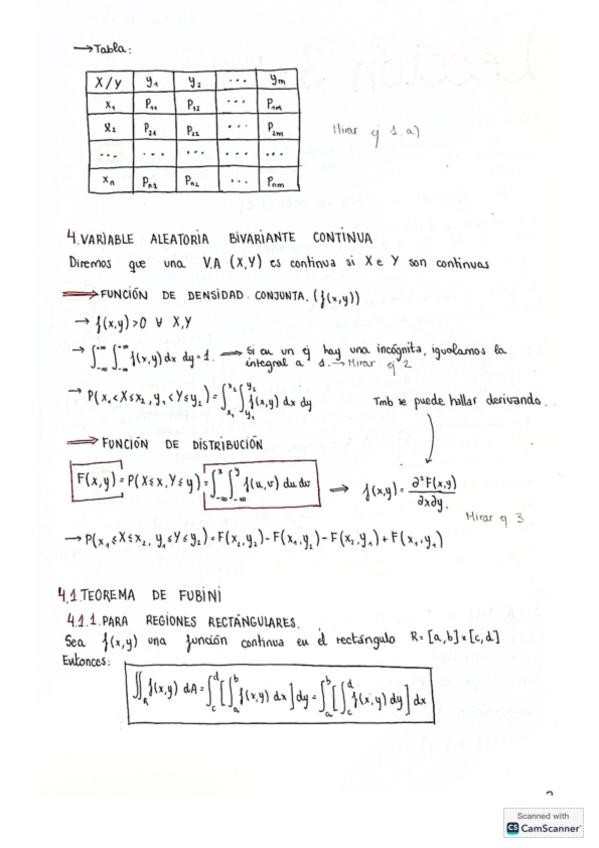 →Tabla:
X/y y₁ y₂ ... ym
x₁ P₁₁ P₁₂ ... P₁m
x₂ P₂₁ P₂₂ ... P₂m
... ... ... ... ...
xn Pn₁ Pn₂ ... Pnm
Mirar ej 1.a)
4. VARIABLE ALEATORIA BIVARIANTE CONTINUA
Diremos que una V.A (X,Y) es continua si X e Y son continuas
⟹ FUNCIÓN DE DENSIDAD CONJUNTA. (f(x,y))
→ f(x,y)>0 ∀ X,Y
→ ∫_{-∞}^{-∞} ∫_{-∞}^{-∞} f(x,y) dx dy=1. → Si en un ej hay una incógnita, igualamos la
integral a 1. → Mirar ej 2
→ P(x₁<X≤x₂, y₁≤Y≤y₂)=∫_{x₁}^{x₂} ∫_{y₁}^{y₂} f(x,y) dx dy
Tmb se puede hallar derivando.
⟹ FUNCIÓN DE DISTRIBUCIÓN
F(x,y)=P(X≤x,Y≤y)=∫_{-∞}^{x} ∫_{-∞}^{y} f(u,v) du dv ⟹ f(x,y)=∂²F(x,y)/∂x∂y.
Mirar ej 3
→ P(x₁≤X≤x₂, y₁≤Y≤y₂)=F(x₂,y₂)-F(x₁,y₂)-F(x₂,y₁)+F(x₁,y₁)
4.1. TEOREMA DE FUBINI
4.1.1. PARA REGIONES RECTÁNGULARES.
Sea f(x,y) una función continua en el rectángulo R=[a,b]×[c,d]
Entonces:
∬_R f(x,y) dA=∫_c^d [∫_a^b f(x,y) dx] dy=∫_a^b [∫_c^d f(x,y) dy] dx
Scanned with
CS CamScanner